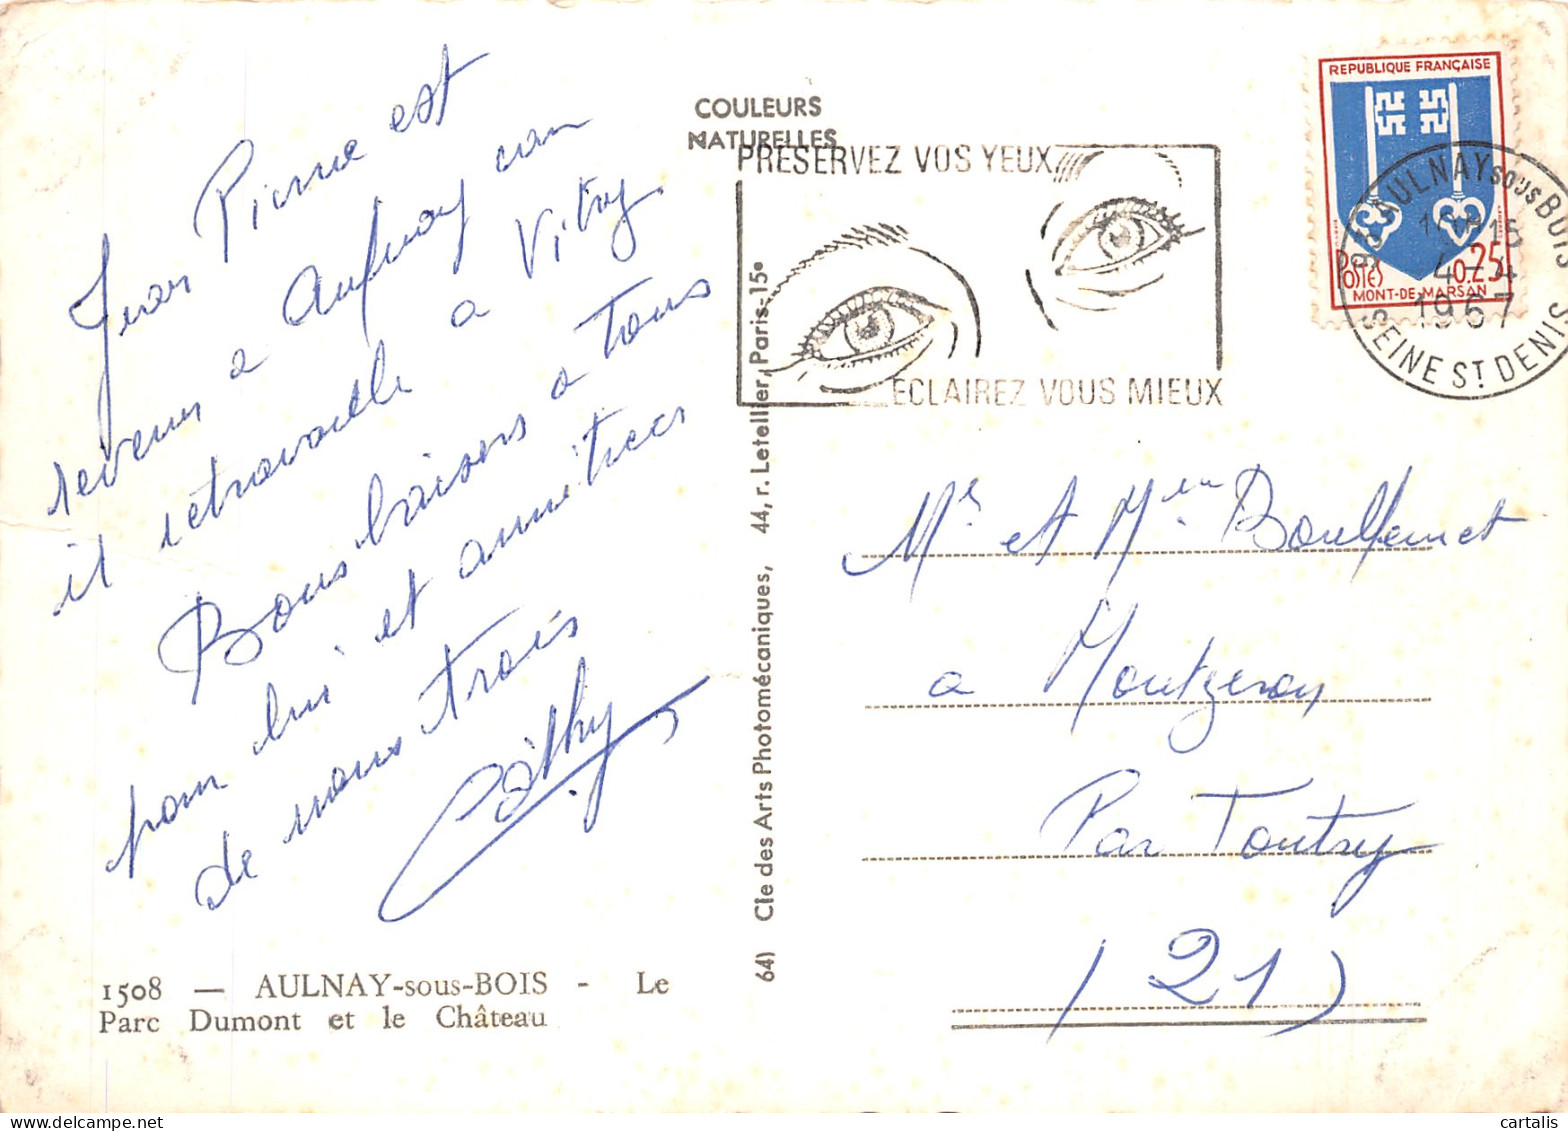 Jean Pierre est
revenu a Aulnay car
il retravaille a Vitry
Bons baisers a tous
pour lui et amitiees
de nous trois
Cathy
1508 — AULNAY-sous-BOIS - Le
Parc Dumont et le Château
COULEURS
NATURELLES
64) Cie des Arts Photomécaniques, 44, r. Letellier, Paris-15e
PRESERVEZ VOS YEUX
ECLAIREZ VOUS MIEUX
REPUBLIQUE FRANÇAISE
POSTES
0.25
MONT-DE-MARSAN
93 AULNAY SOUS BOIS
15
4-4
1967
SEINE ST DENIS
Mr et Mme Boullemet
a Montzeron
Par Toutry
(21)
cartalis